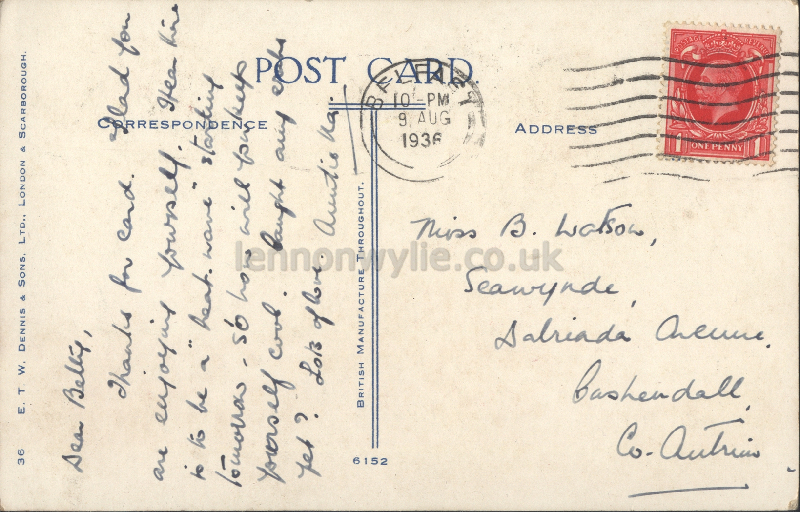 POST CARD.
CORRESPONDENCE
ADDRESS
BELFAST
10 - PM
9 AUG
1936
1 ONE PENNY 1
Dear Betty,
Thanks for card. Glad you
are enjoying yourself. Hear here
is to be a "heat-wave" starting
tomorrow - so how will you keep
yourself cool. Caught any crabs
yet? Lots of love. Auntie
Miss B. Watson,
Seawynde,
Dalriada Avenue,
Cushendall,
Co-Antrim
36 E. T. W. DENNIS & SONS, LTD., LONDON & SCARBOROUGH.
BRITISH MANUFACTURE THROUGHOUT.
6152
lennonwylie.co.uk